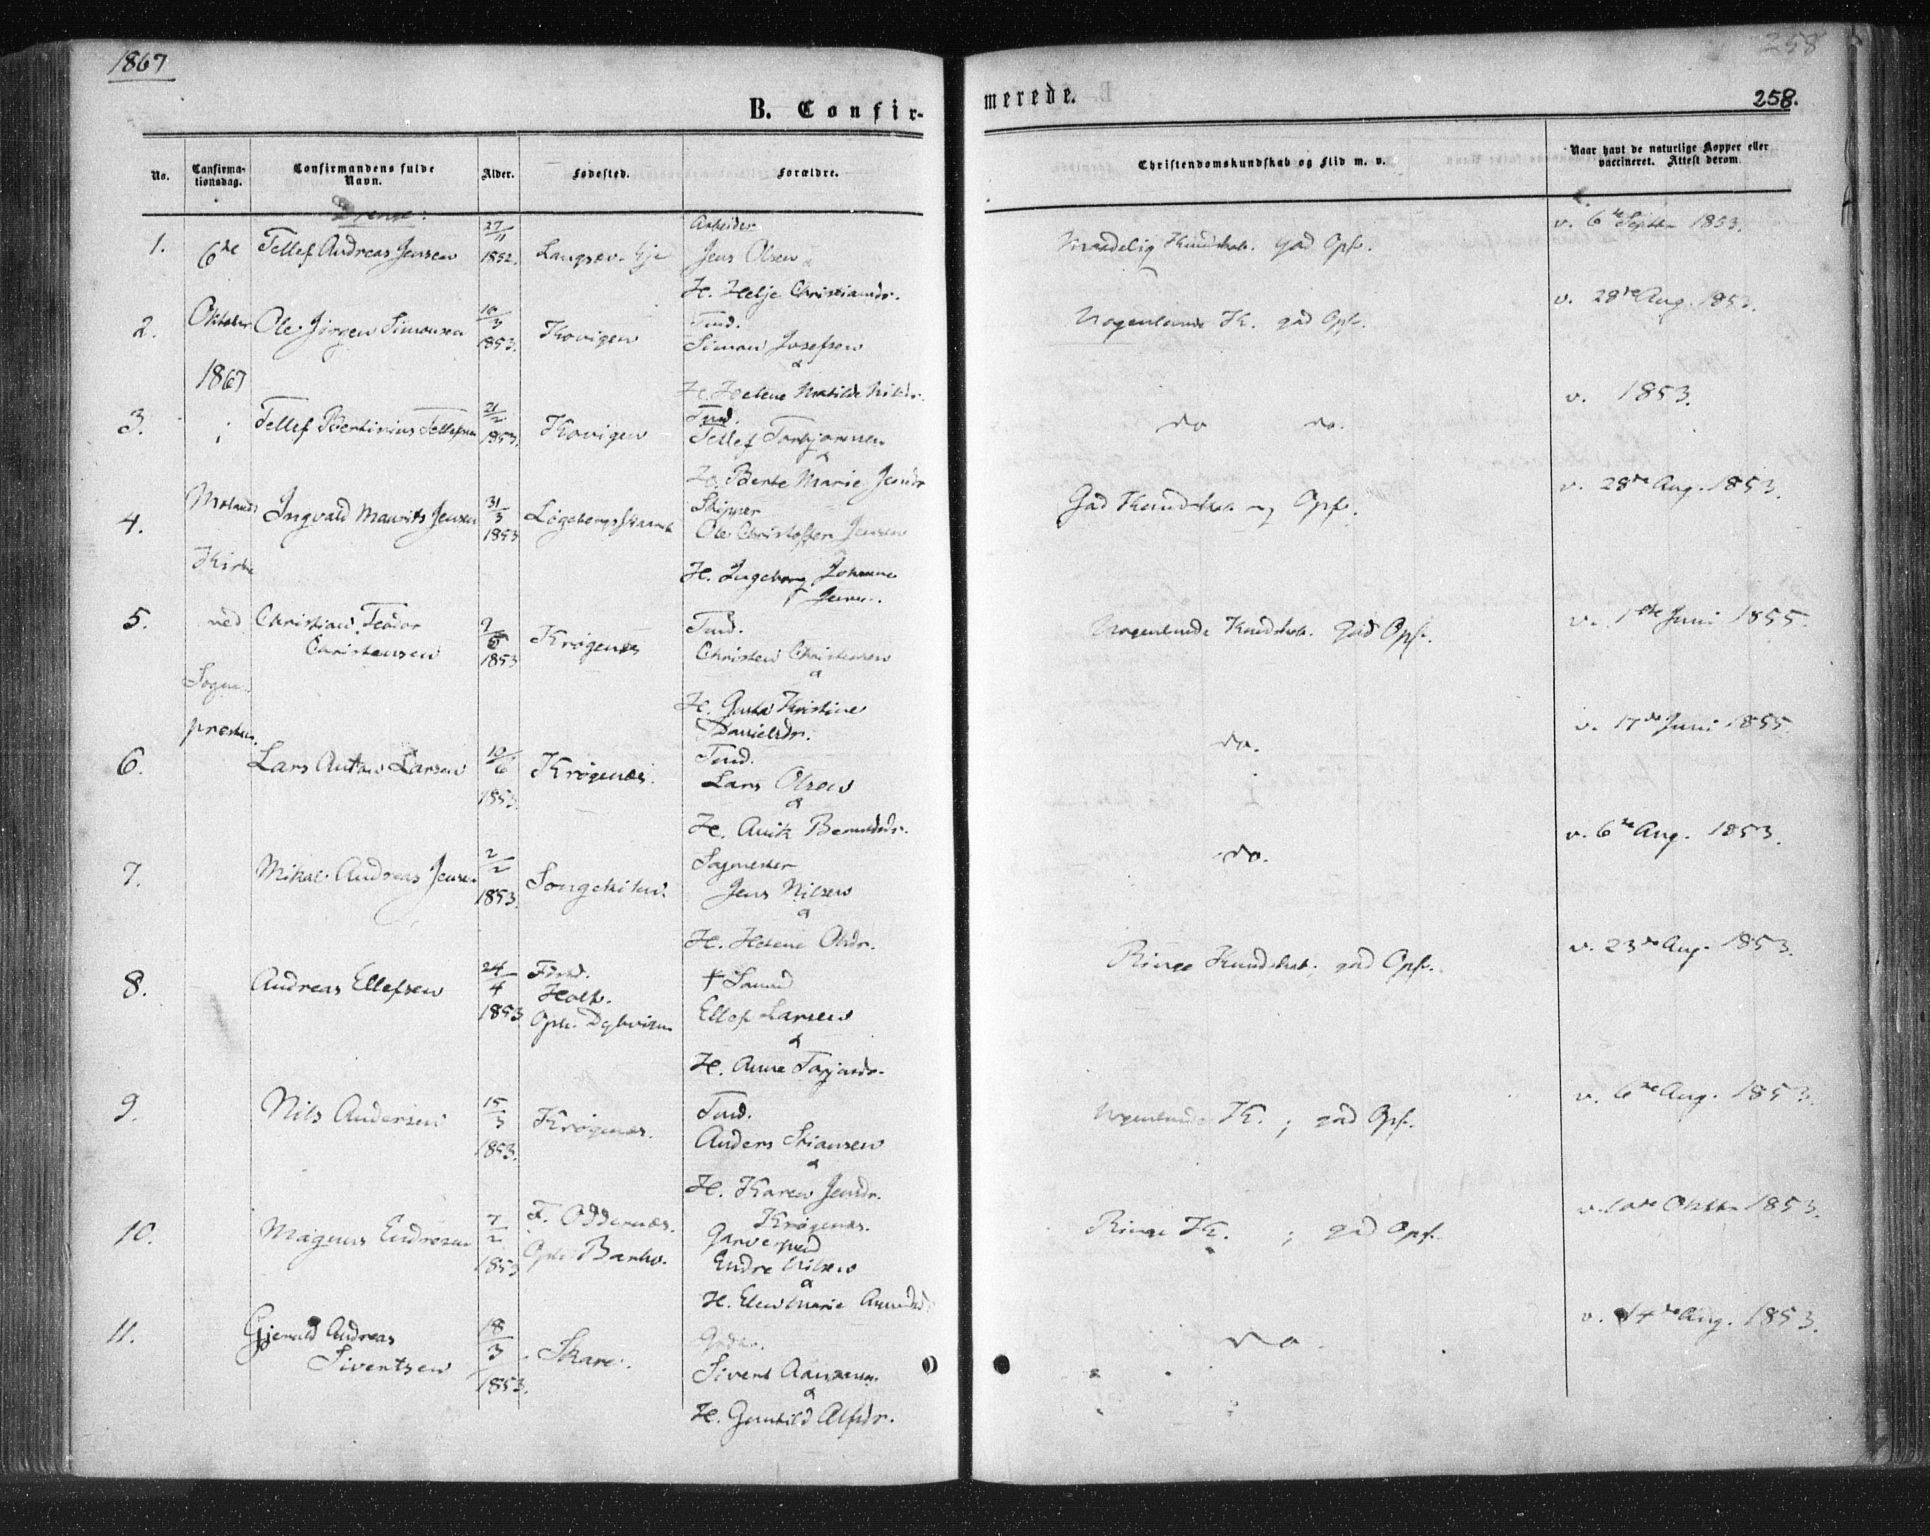 1867
258
B. Confir-
merede.
258.
No.
Confirma-
tionsdag.
Confirmandens fulde
Navn.
Alder.
Fødested.
Forældre.
Christendomskundskab og Flid m. v.
Naar havt de naturlige Kopper eller
vaccineret. Attest derom.
Drenge:
6te
Oktober
1867
i
Molands
Kirke
ved
Sogne-
præsten.
1. Tellef Andreas Jensen 27/11 1852. Arbeider
Jens Olsen
&
H. Helje Christiansdr.
Maadelig Kundskab. god Opf. v. 6te Septbr 1853.
2. Ole Jörgen Simonsen 10/3 1853. Kovigen Tmd.
Simon Josefsen
&
H. Helene Matilde Nilsdr.
Nogenlunde K. god Opf. v. 28de Aug. 1853.
3. Tellef Bertinius Tellefsen 21/2 1853. Kovigen Tmd.
Tellef Torbjørnsen
&
H. Berte Marie Jensdr
do do. v. 1853.
4. Ingvald Maurits Jensen 31/3 1853 Skipper
Ole Christoffer Jensen
&
H. Ingeborg Johanne
Jensen.
God Kundskab og Opf. v. 28de Aug. 1853.
5. Christian Teodor
Christensen 9/5 1853 Krögenæs Tmd.
Christen Christensen
&
H. Kristine
Danielsdr.
Nogenlunde Kundskab. God Opf. v. 1ste Juni 1855.
6. Lars Anton Larsen 10/6 1853. Krögenæs. Tmd.
Lars Olsen
&
H. Anik
do. v. 17de Juni 1855.
7. Mikal Andreas Jensen 2/2 1853. Songekilen. Sagmester
Jens Nilsen
&
H. Helene Olsdr.
do. v. 6te Aug. 1853.
8. Andreas Ellefsen 24/4 1853 Föd.
Holt.
Oph. Dybvigen † Tmd
Ellef Larsen
&
H. Anne Torjusdr.
Ringe Kundskab; god Opf. v. 23de Aug. 1853.
9. Nils Andersen 15/3 1853. Krögenæs. Tmd.
Anders Stiansen
&
H. Karen Jensdr.
Nogenlunde K.; god Opf. v. 6te Aug. 1853.
10. Magnus Endresen 7/2 1853 F. Oddernæs.
Oph. Krögenæs.
Endre Nilsen
&
H. Elen Marie
Ringe K.; god Opf. v. 10de Oktbr 1853.
11. Gjeruld Andreas
Sivertsen 18/3 1853. Skare. Gadbr.
Sivert Aanonsen
&
H. Gunhild Alfsdr.
do v. 14de Aug. 1853.